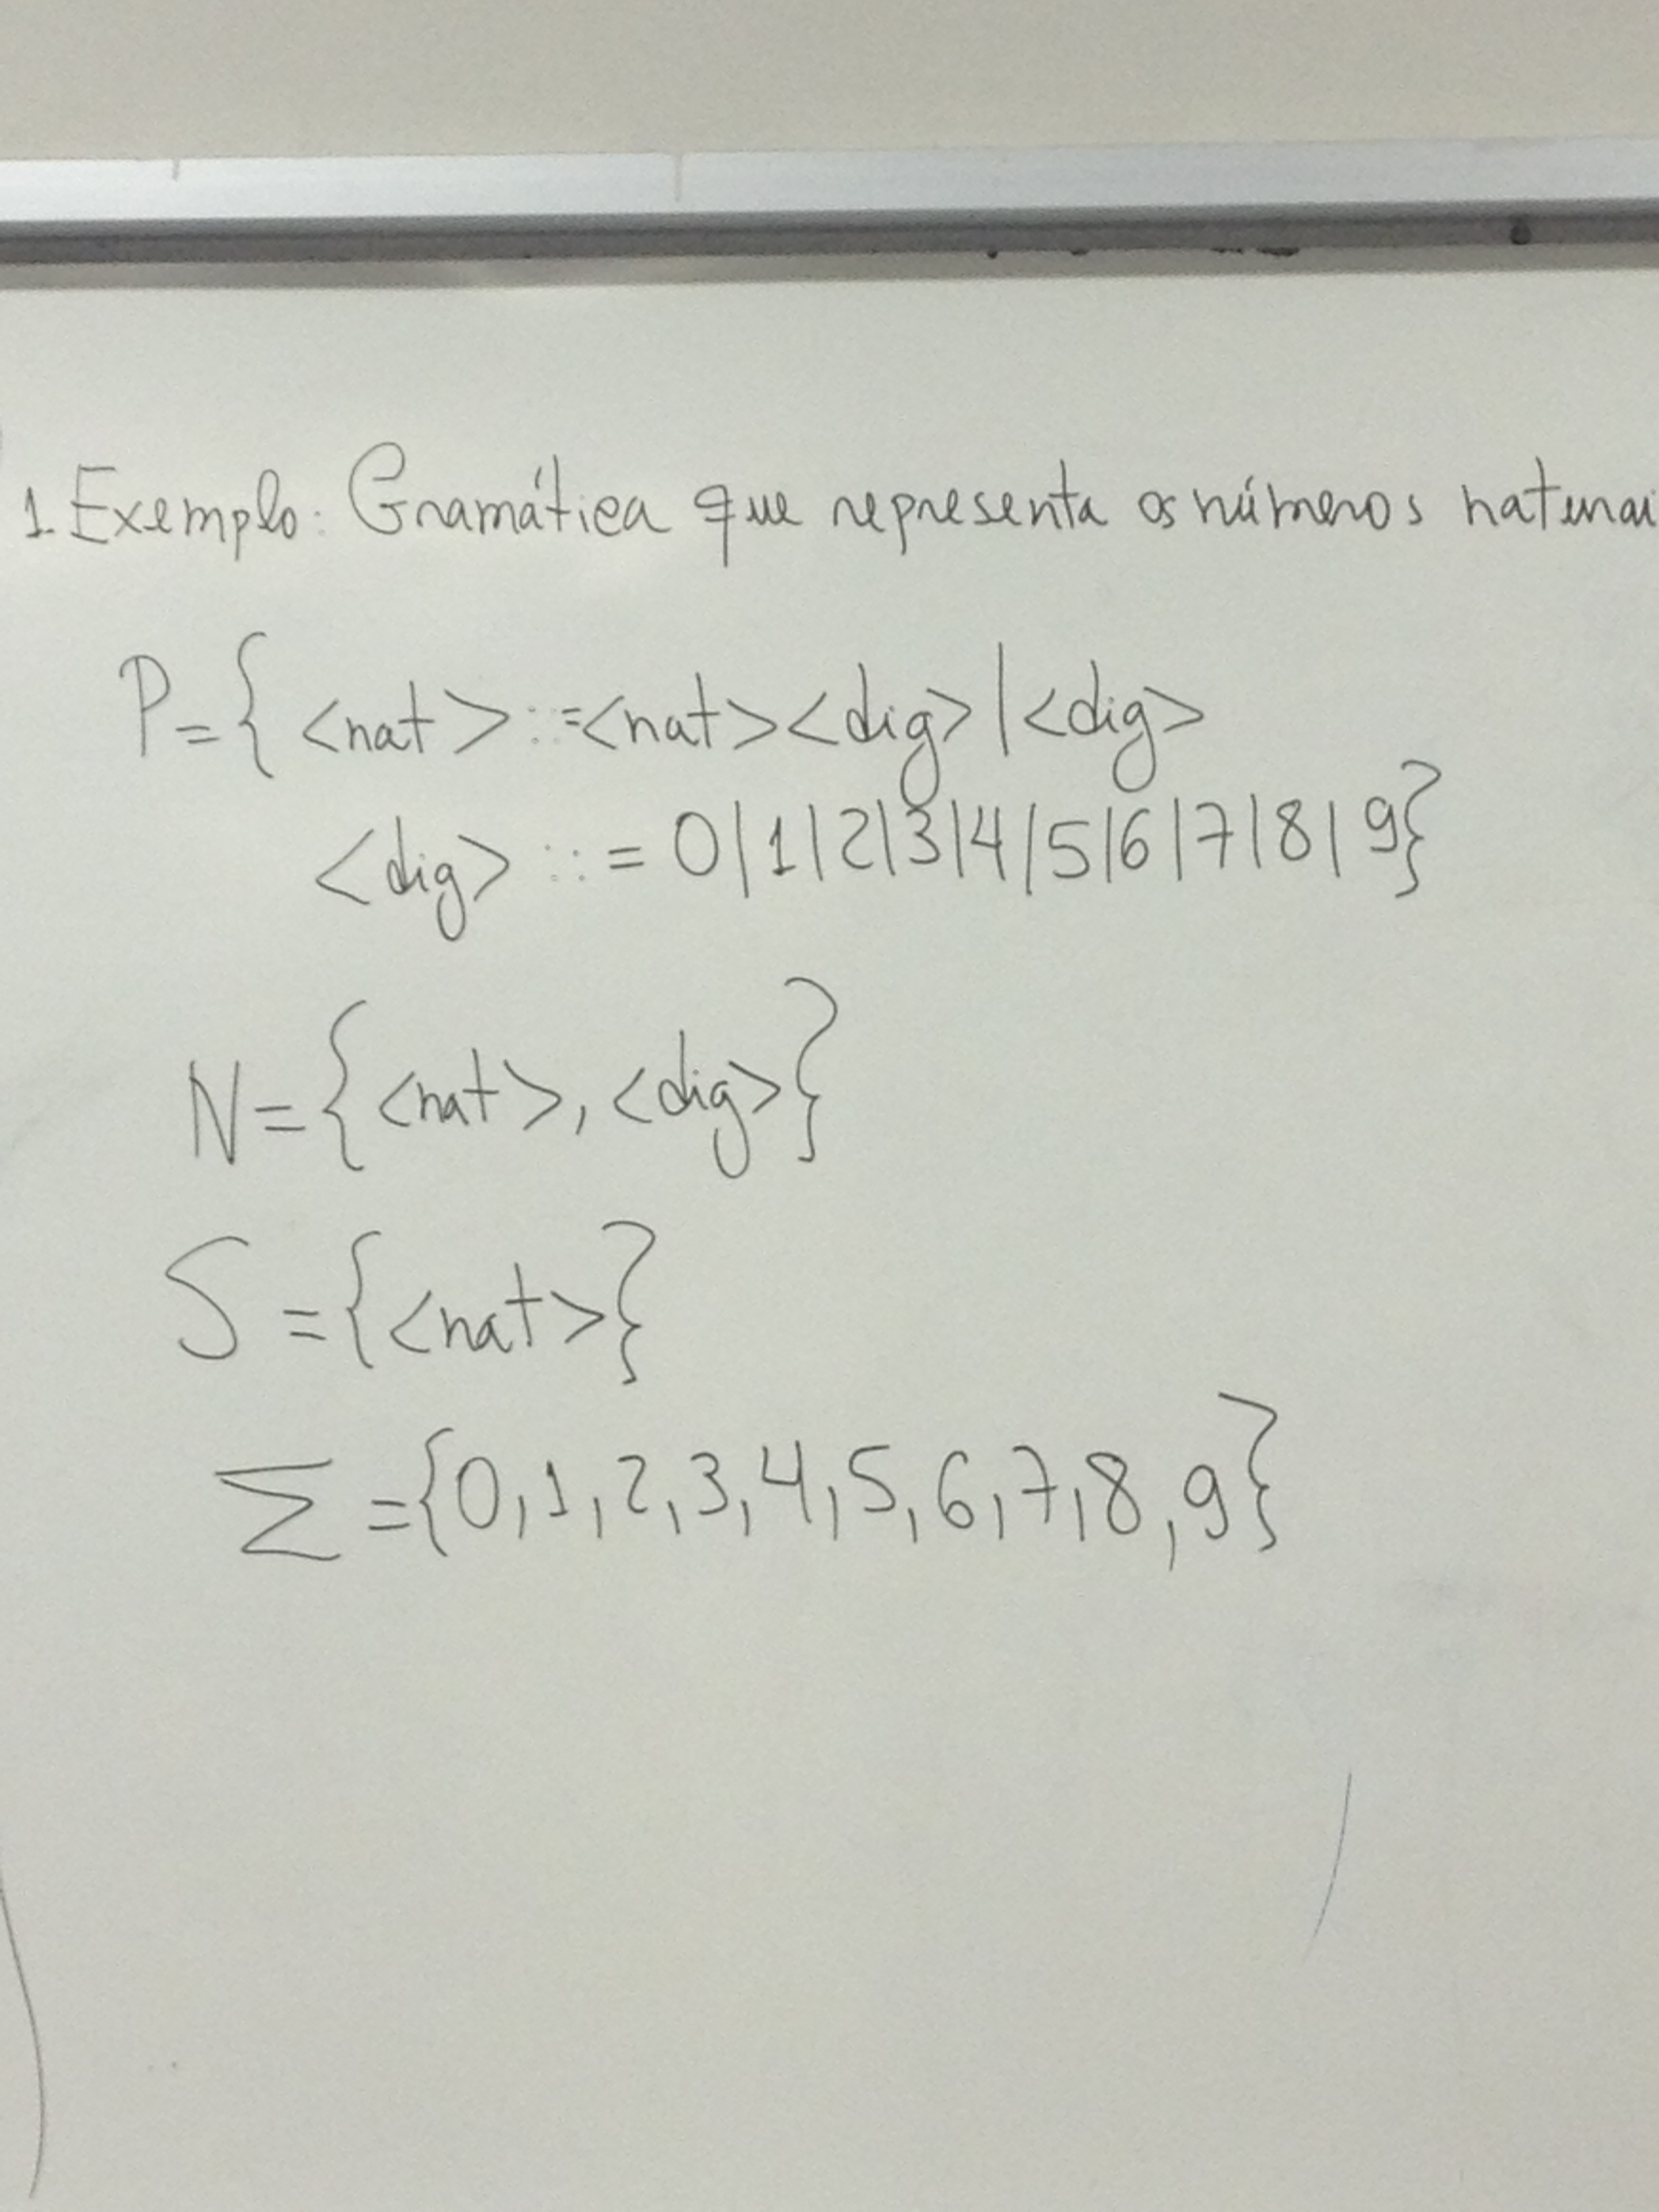 1. Exemplo: Gramática que representa os números naturai
P={ <nat> ::=<nat><dig>|<dig>
<dig> ::= 0|1|2|3|4|5|6|7|8|9}
N={<nat>, <dig>}
S={<nat>}
Σ={0,1,2,3,4,5,6,7,8,9}